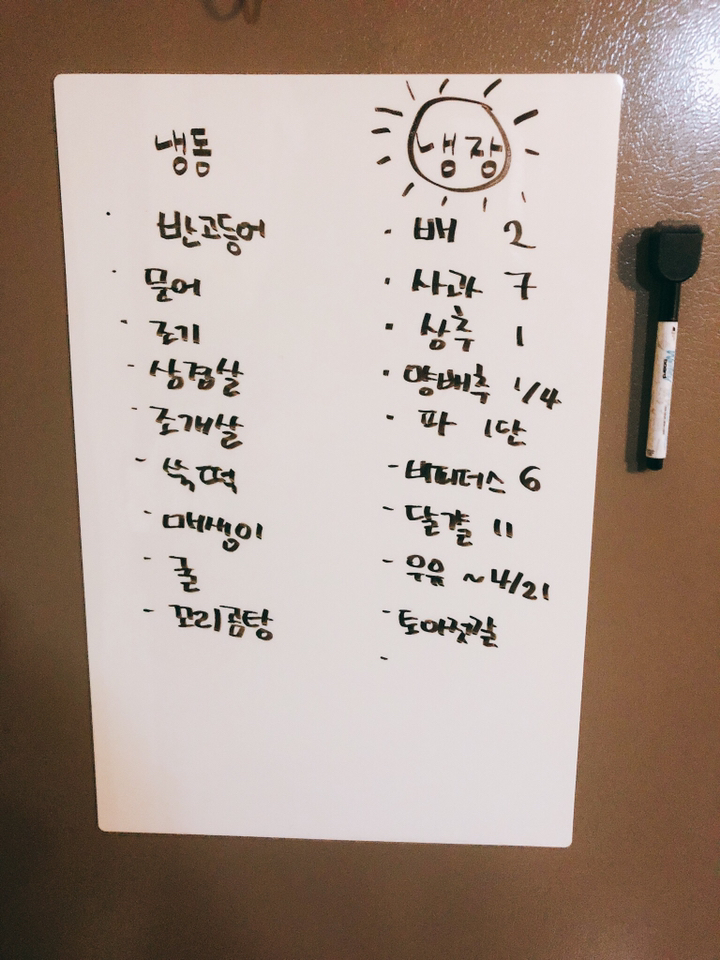 냉동
반고등어
문어
조기
삼겹살
조개살
쑥떡
매생이
굴
꼬리곰탕
냉장
· 배 2
· 사과 7
· 상추 1
· 양배추 1/4
· 파 1단
- 비피더스 6
- 달걀 11
- 우유 ~4/21
- 토아젓갈
board